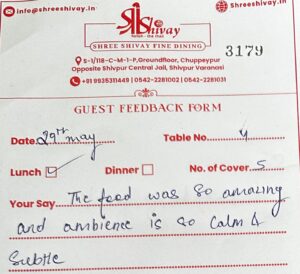 info@shreeshivay.in
Shreeshivay.in
Shivay
SHREE SHIVAY FINE DINING
3179
S-1/118-C-M-1-P,Groundfloor, Chuppeypur
Opposite Shivpur Central Jail, Shivpur Varanasi
+91 9935311449 | 0542-2281002 | 0542-2281031
GUEST FEEDBACK FORM
Date 29th may Table No. 4
Lunch ✓ Dinner No. of Cover 5
Your Say The food was so amazing
and ambience is so calm &
Subtle